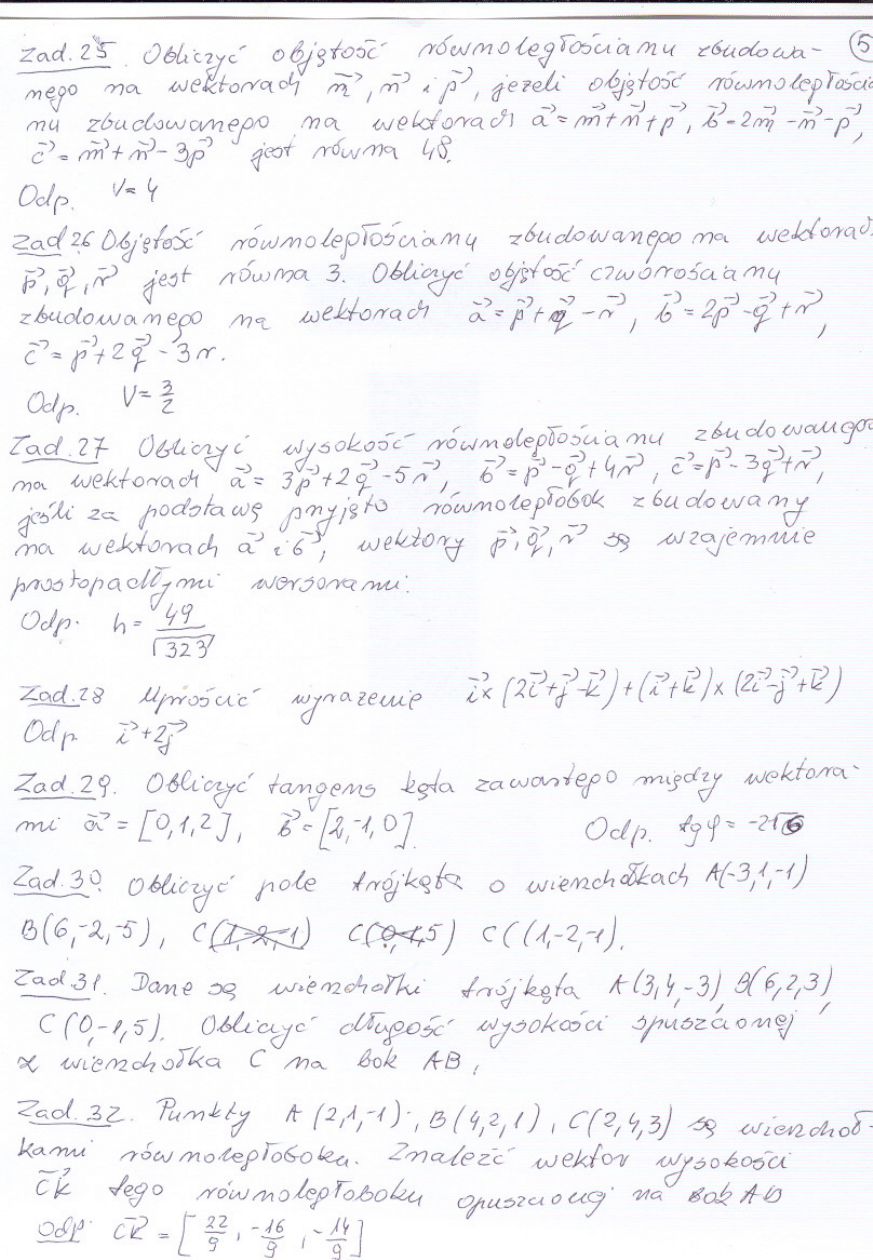 Zad. 25. Obliczyć objętość równoległościanu zbudowa- (5
nego na wektorach m⃗, n⃗ i p⃗, jeżeli objętość równoległościa
nu zbudowanego na wektorach a⃗=m⃗+n⃗+p⃗, b⃗=2m⃗-n⃗-p⃗,
c⃗=m⃗+n⃗-3p⃗ jest równa 48.
Odp. V=4
Zad 26 Objętość równoległościanu zbudowanego na wektorach
p⃗, q⃗, r⃗ jest równa 3. Obliczyć objętość czworościanu
zbudowanego na wektorach a⃗=p⃗+q⃗-r⃗, b⃗=2p⃗-q⃗+r⃗,
c⃗=p⃗+2q⃗-3r.
Odp. V=3/2
Zad. 27 Obliczyć wysokość równoległościanu zbudowanego
na wektorach a⃗=3p⃗+2q⃗-5r⃗, b⃗=p⃗-q⃗+4r⃗, c⃗=p⃗-3q⃗+r⃗,
jeśli za podstawę przyjęto równoległobok zbudowany
na wektorach a⃗ i b⃗, wektory p⃗, q⃗, r⃗ są wzajemnie
prostopadłymi wersorami.
Odp. h=49/√323
Zad. 28 Uprościć wyrażenie i⃗×(2i⃗+j⃗-k⃗)+(i⃗+k⃗)×(2i⃗-j⃗+k⃗)
Odp. i⃗+2j⃗
Zad. 29. Obliczyć tangens kąta zawartego między wektora-
mi a⃗=[0,1,2], b⃗=[2,-1,0]. Odp. tgφ=-2√6
Zad. 30. Obliczyć pole trójkąta o wierzchołkach A(-3,1,-1)
B(6,-2,-5), C(1,-2,1) C(0,4,5) C((1,-2,-1).
Zad 31. Dane są wierzchołki trójkąta A(3,4,-3), B(6,2,3),
C(0,-1,5). Obliczyć długość wysokości spuszczonej
z wierzchołka C na bok AB.
Zad. 32. Punkty A(2,1,-1), B(4,2,1), C(2,4,3) są wierzchoł-
kami równoległoboku. Znaleźć wektor wysokości
CK⃗ tego równoległoboku opuszczonej na bok AB
Odp. CK⃗=[22/9, -16/9, -14/9]